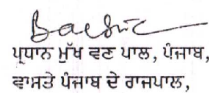 ਪ੍ਰਧਾਨ ਮੁੱਖ ਵਣ ਪਾਲ, ਪੰਜਾਬ,
ਵਾਸਤੇ ਪੰਜਾਬ ਦੇ ਰਾਜਪਾਲ,